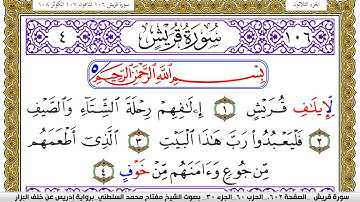 الجزء الثلاثون
سورة قريش ١٠٦ الماعون ١٠٧ الكوثر ١٠٨
١٠٦ سُورَةُ قُرَيْشٍ ٤
بِسْمِ اللَّهِ الرَّحْمَٰنِ الرَّحِيمِ ٥
لِإِيلَٰفِ قُرَيْشٍ ١ إِۦلَٰفِهِمْ رِحْلَةَ الشِّتَآءِ وَالصَّيْفِ
٢ فَلْيَعْبُدُوا۟ رَبَّ هَٰذَا الْبَيْتِ ٣ الَّذِىٓ أَطْعَمَهُم
مِّن جُوعٍ وَءَامَنَهُم مِّنْ خَوْفٍ ٤
سورة قريش الصفحة ٦٠٢ الحزب ٦٠ الجزء ٣٠ بصوت الشيخ مفتاح محمد السلطني برواية إدريس عن خلف البزار